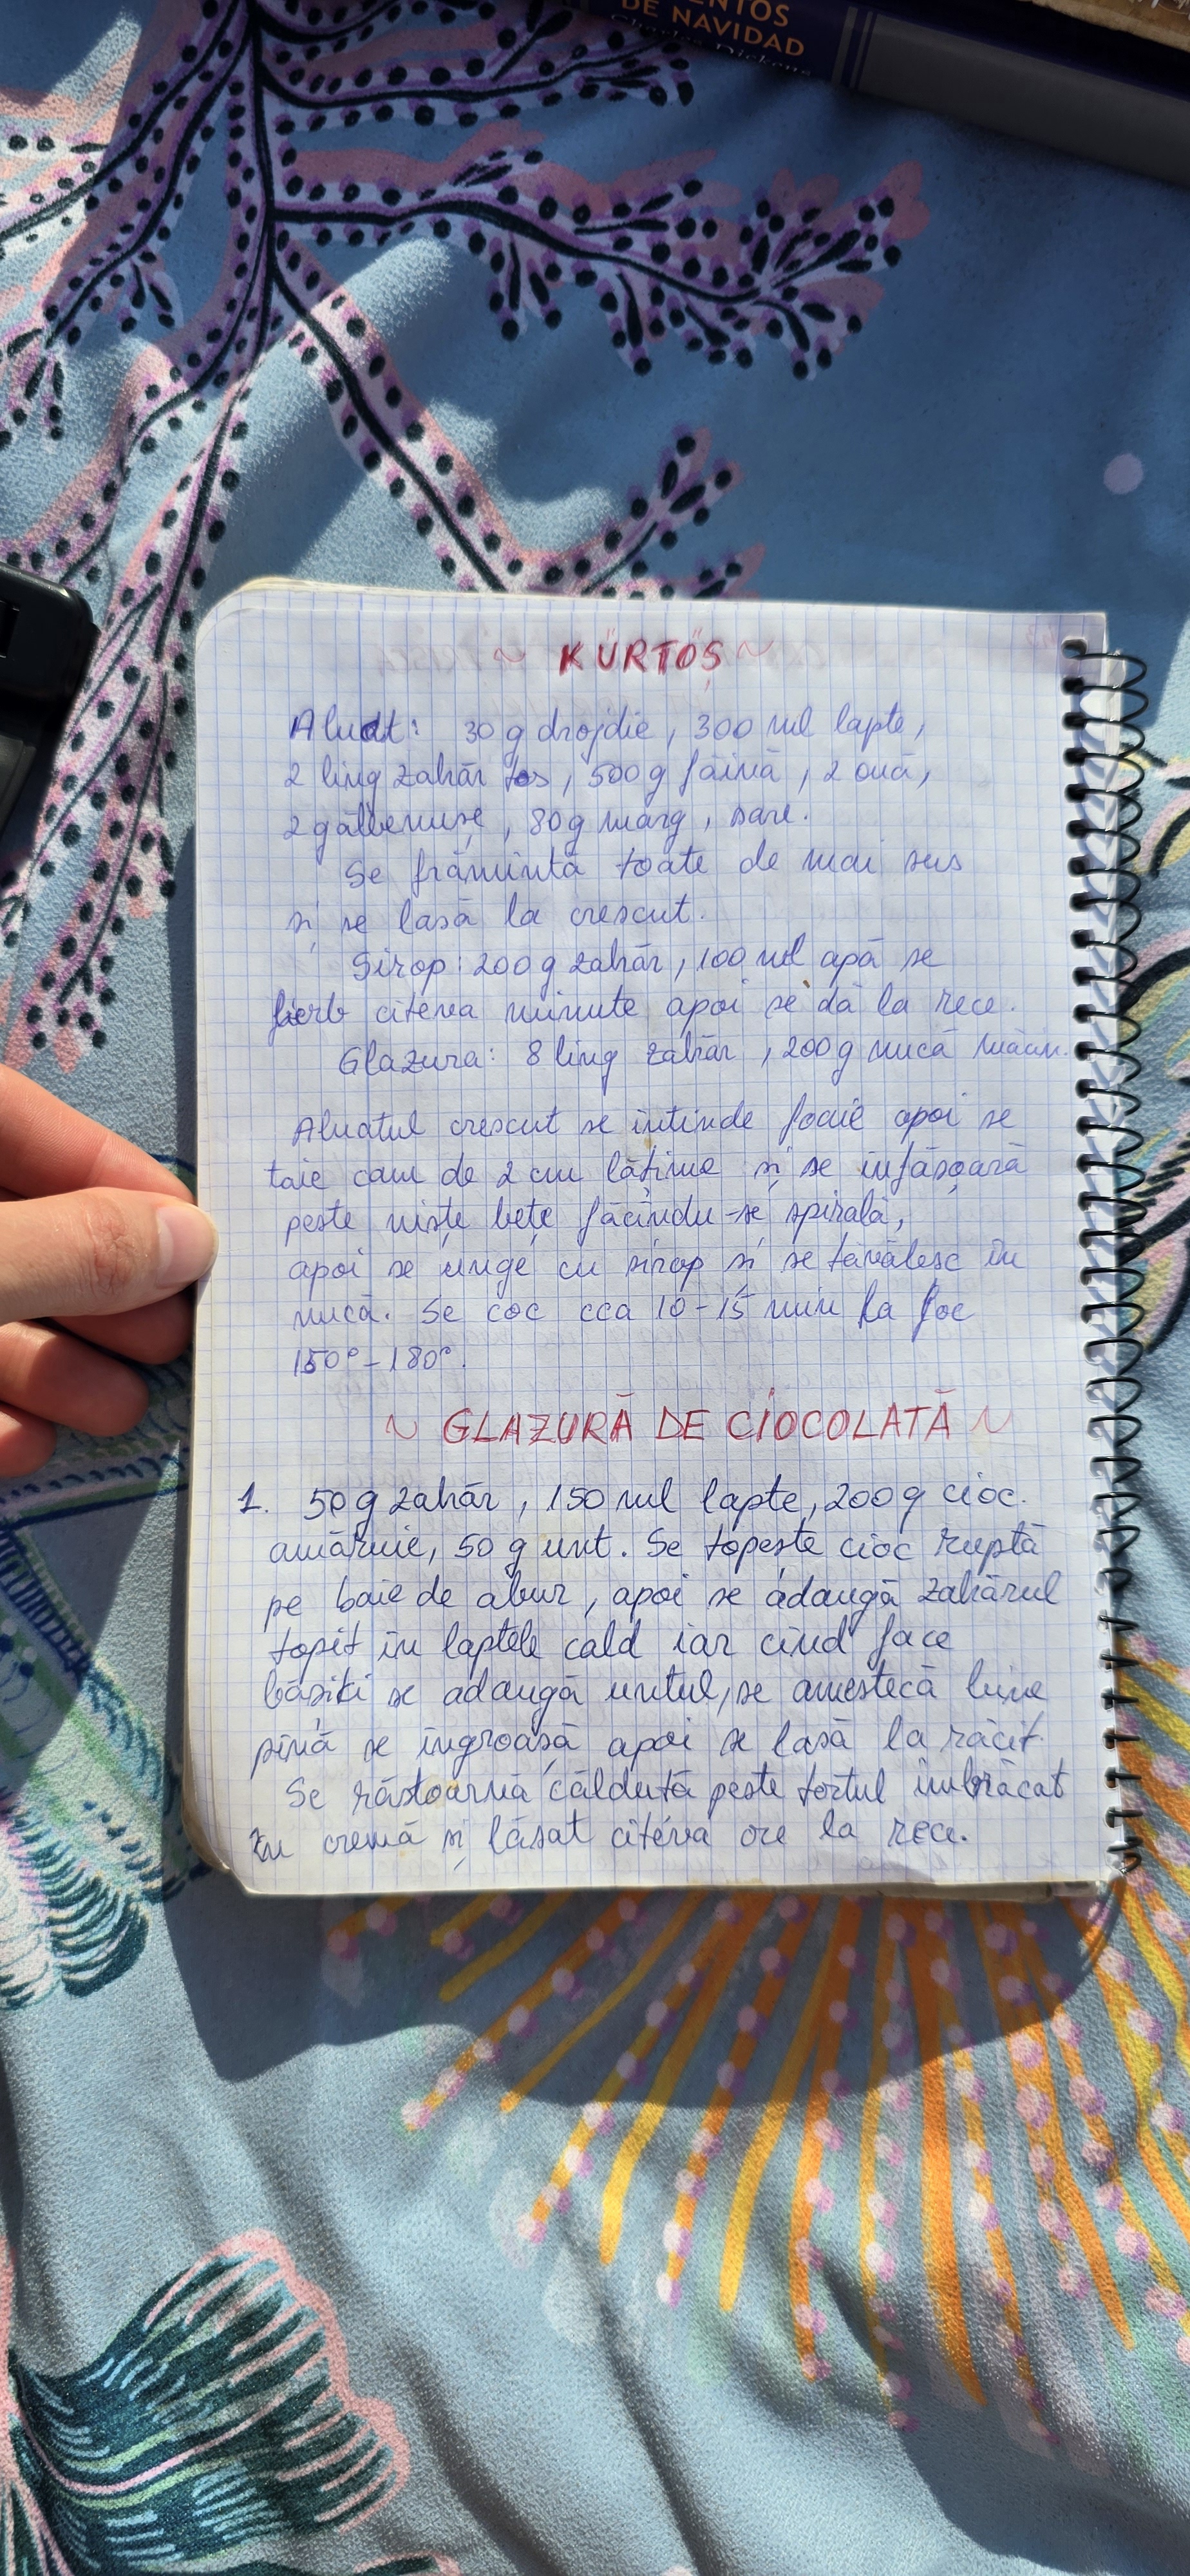 ENTOS
DE NAVIDAD
Charles Dickens
~ KÜRTŐȘ ~
Aluat: 30 g drojdie, 300 ml lapte,
2 ling zahăr tos, 500 g făină, 2 ouă,
2 gălbenușe, 80 g marg, sare.
Se frămîntă toate de mai sus
și se lasă la crescut.
Sirop: 200 g zahăr, 100 ml apă se
fierb cîteva minute apoi se dă la rece.
Glazura: 8 ling zahăr, 200 g nucă măcin.
Aluatul crescut se întinde foaie apoi se
taie cam de 2 cm lățime și se înfășoară
peste niște bețe făcîndu-se spirală,
apoi se unge cu sirop și se tăvălesc în
nucă. Se coc cca 10-15 min la foc
150°-180°.
~ GLAZURĂ DE CIOCOLATĂ ~
1. 50 g zahăr, 150 ml lapte, 200 g cioc.
amăruie, 50 g unt. Se topește cioc ruptă
pe baie de abur, apoi se adaugă zahărul
topit în laptele cald iar cînd face
bășiki se adaugă untul, se amestecă bine
pînă se îngroașă apoi se lasă la răcit.
Se răstoarnă călduță peste tortul îmbrăcat
în cremă și lăsat cîteva ore la rece.